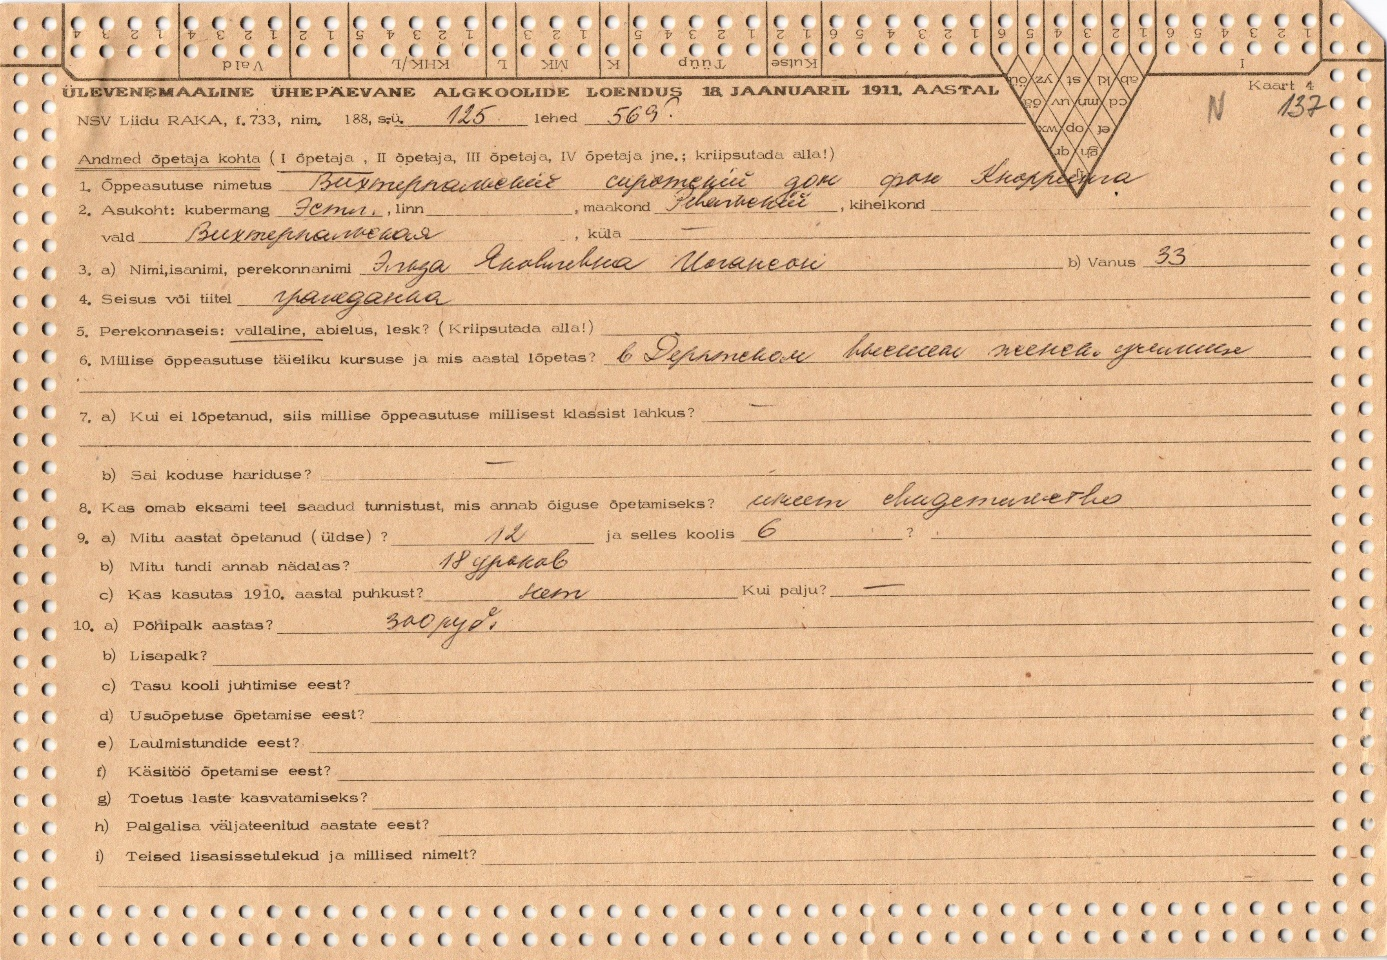 ÜLEVENEMAALINE ÜHEPÄEVANE ALGKOOLIDE LOENDUS 18. JAANUARIL 1911. AASTAL
Kaart 4
N 137
NSV Liidu RAKA, f. 733, nim. 188, s.-ü. 125 lehed 569?
Andmed õpetaja kohta (I õpetaja, II õpetaja, III õpetaja, IV õpetaja jne.; kriipsutada alla!)
1. Õppeasutuse nimetus Вихтерпальский сиротский дом фон Кнорринга
2. Asukoht: kubermang Эстл., linn , maakond Ревельский , kihelkond
vald Вихтерпальская , küla —
3. a) Nimi, isanimi, perekonnanimi Эльза Яковлевна Иогансон b) Vanus 33
4. Seisus või tiitel гражданка
5. Perekonnaseis: vallaline, abielus, lesk? (Kriipsutada alla!)
6. Millise õppeasutuse täieliku kursuse ja mis aastal lõpetas? в Дерптском высшем женск. училище
7. a) Kui ei lõpetanud, siis millise õppeasutuse millisest klassist lahkus? —
b) Sai koduse hariduse? —
8. Kas omab eksami teel saadud tunnistust, mis annab õiguse õpetamiseks? имеет свидетельство
9. a) Mitu aastat õpetanud (üldse)? 12 ja selles koolis 6 ?
b) Mitu tundi annab nädalas? 18 уроков
c) Kas kasutas 1910. aastal puhkust? нет Kui palju? —
10. a) Põhipalk aastas? 300 руб.
b) Lisapalk?
c) Tasu kooli juhtimise eest?
d) Usuõpetuse õpetamise eest?
e) Laulmistundide eest?
f) Käsitöö õpetamise eest?
g) Toetus laste kasvatamiseks?
h) Palgalisa väljateenitud aastate eest?
i) Teised lisasissetulekud ja millised nimelt?